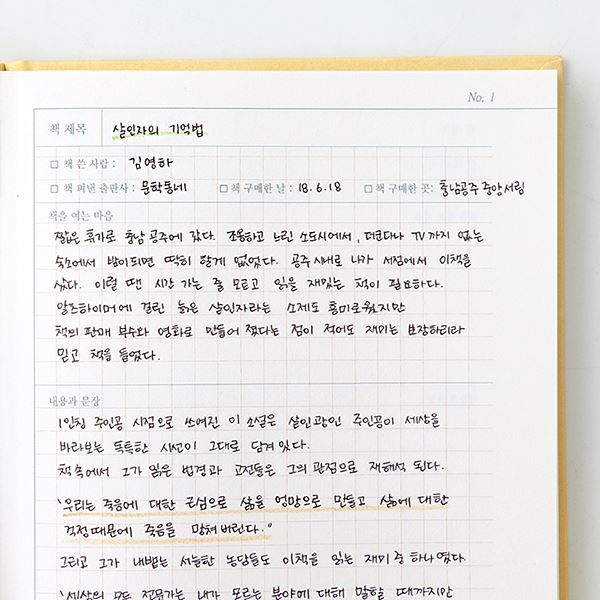 No. 1
책 제목 살인자의 기억법
□ 책 쓴 사람 : 김영하
□ 책 펴낸 출판사 : 문학동네 □ 책 구매한 날 : 18.6.18 □ 책 구매한 곳: 충남공주 중앙서림
책을 여는 마음
짧은 휴가로 충남 공주에 갔다. 조용하고 느린 소도시에서, 더군다나 TV까지 없는
숙소에서 밤이되면 딱히 할게 없었다. 공주 시내로 나가 서점에서 이책을
샀다. 이럴 땐 시간 가는 줄 모르고 읽을 재밌는 책이 필요하다.
알츠하이머에 걸린 늙은 살인자라는 소재도 흥미로웠지만
책의 판매 부수와 영화로 만들어 졌다는 점이 적어도 재미는 보장하리라
믿고 책을 들었다.
내용과 문장
1인칭 주인공 시점으로 쓰여진 이 소설은 살인광인 주인공이 세상을
바라보는 독특한 시선이 그대로 담겨있다.
책 속에서 그가 읽은 반경과 고전들은 그의 관점으로 재해석 된다.
"우리는 죽음에 대한 근심으로 삶을 엉망으로 만들고 삶에 대한
걱정때문에 죽음을 망쳐버린다."
그리고 그가 내뱉는 서늘한 농담들도 이책을 읽는 재미 중 하나였다.
"세상의 모든 전문가는 내가 모르는 분야에 대해 말할 때까지만